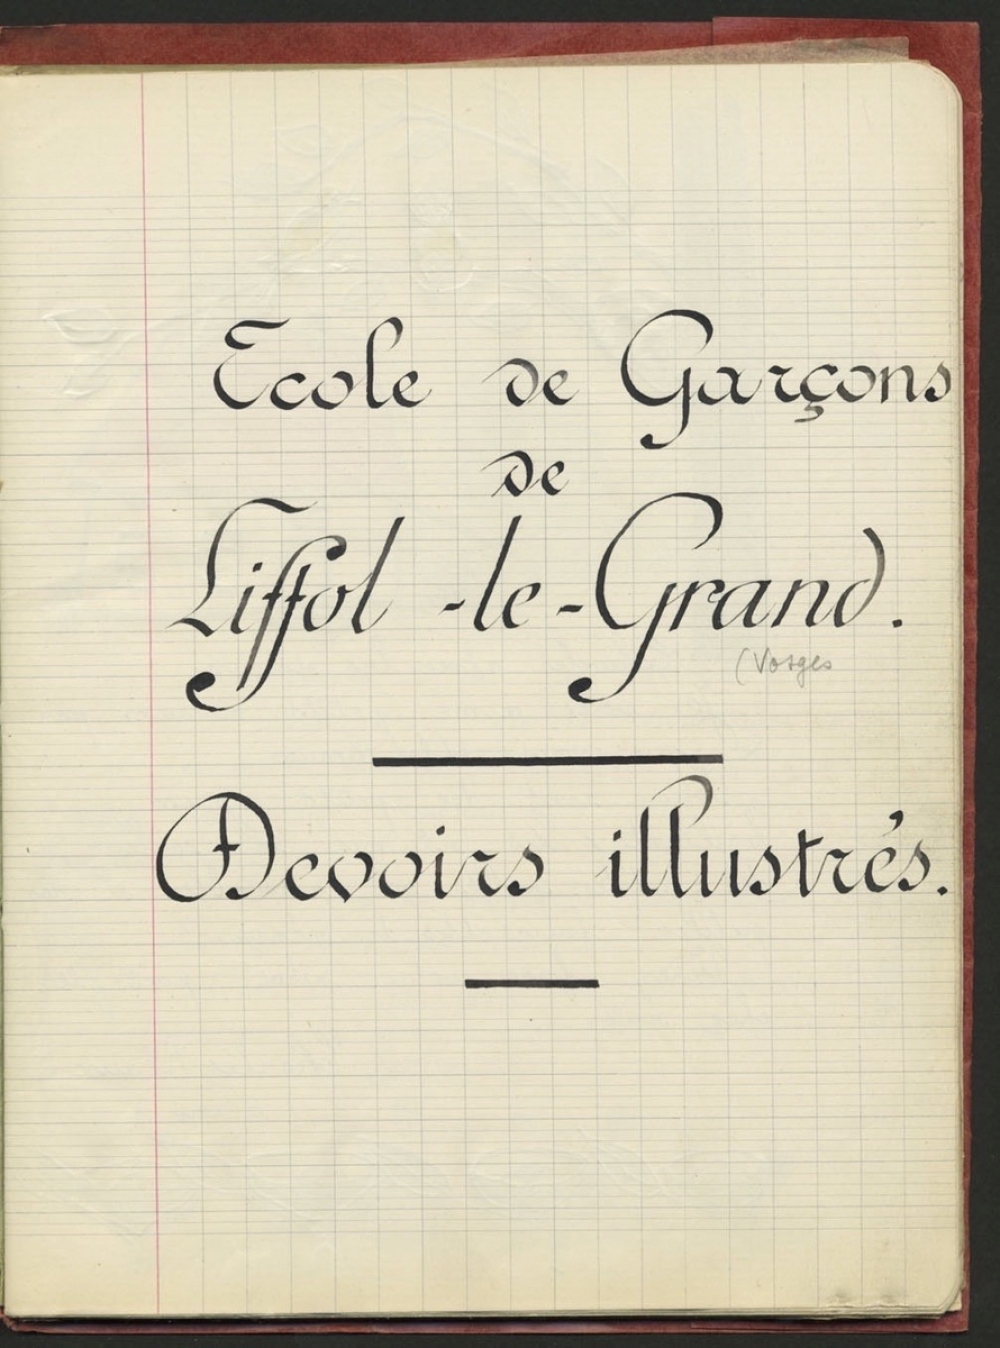 Ecole de Garçons
de
Liffol-le-Grand.
(Vosges
Devoirs illustrés.